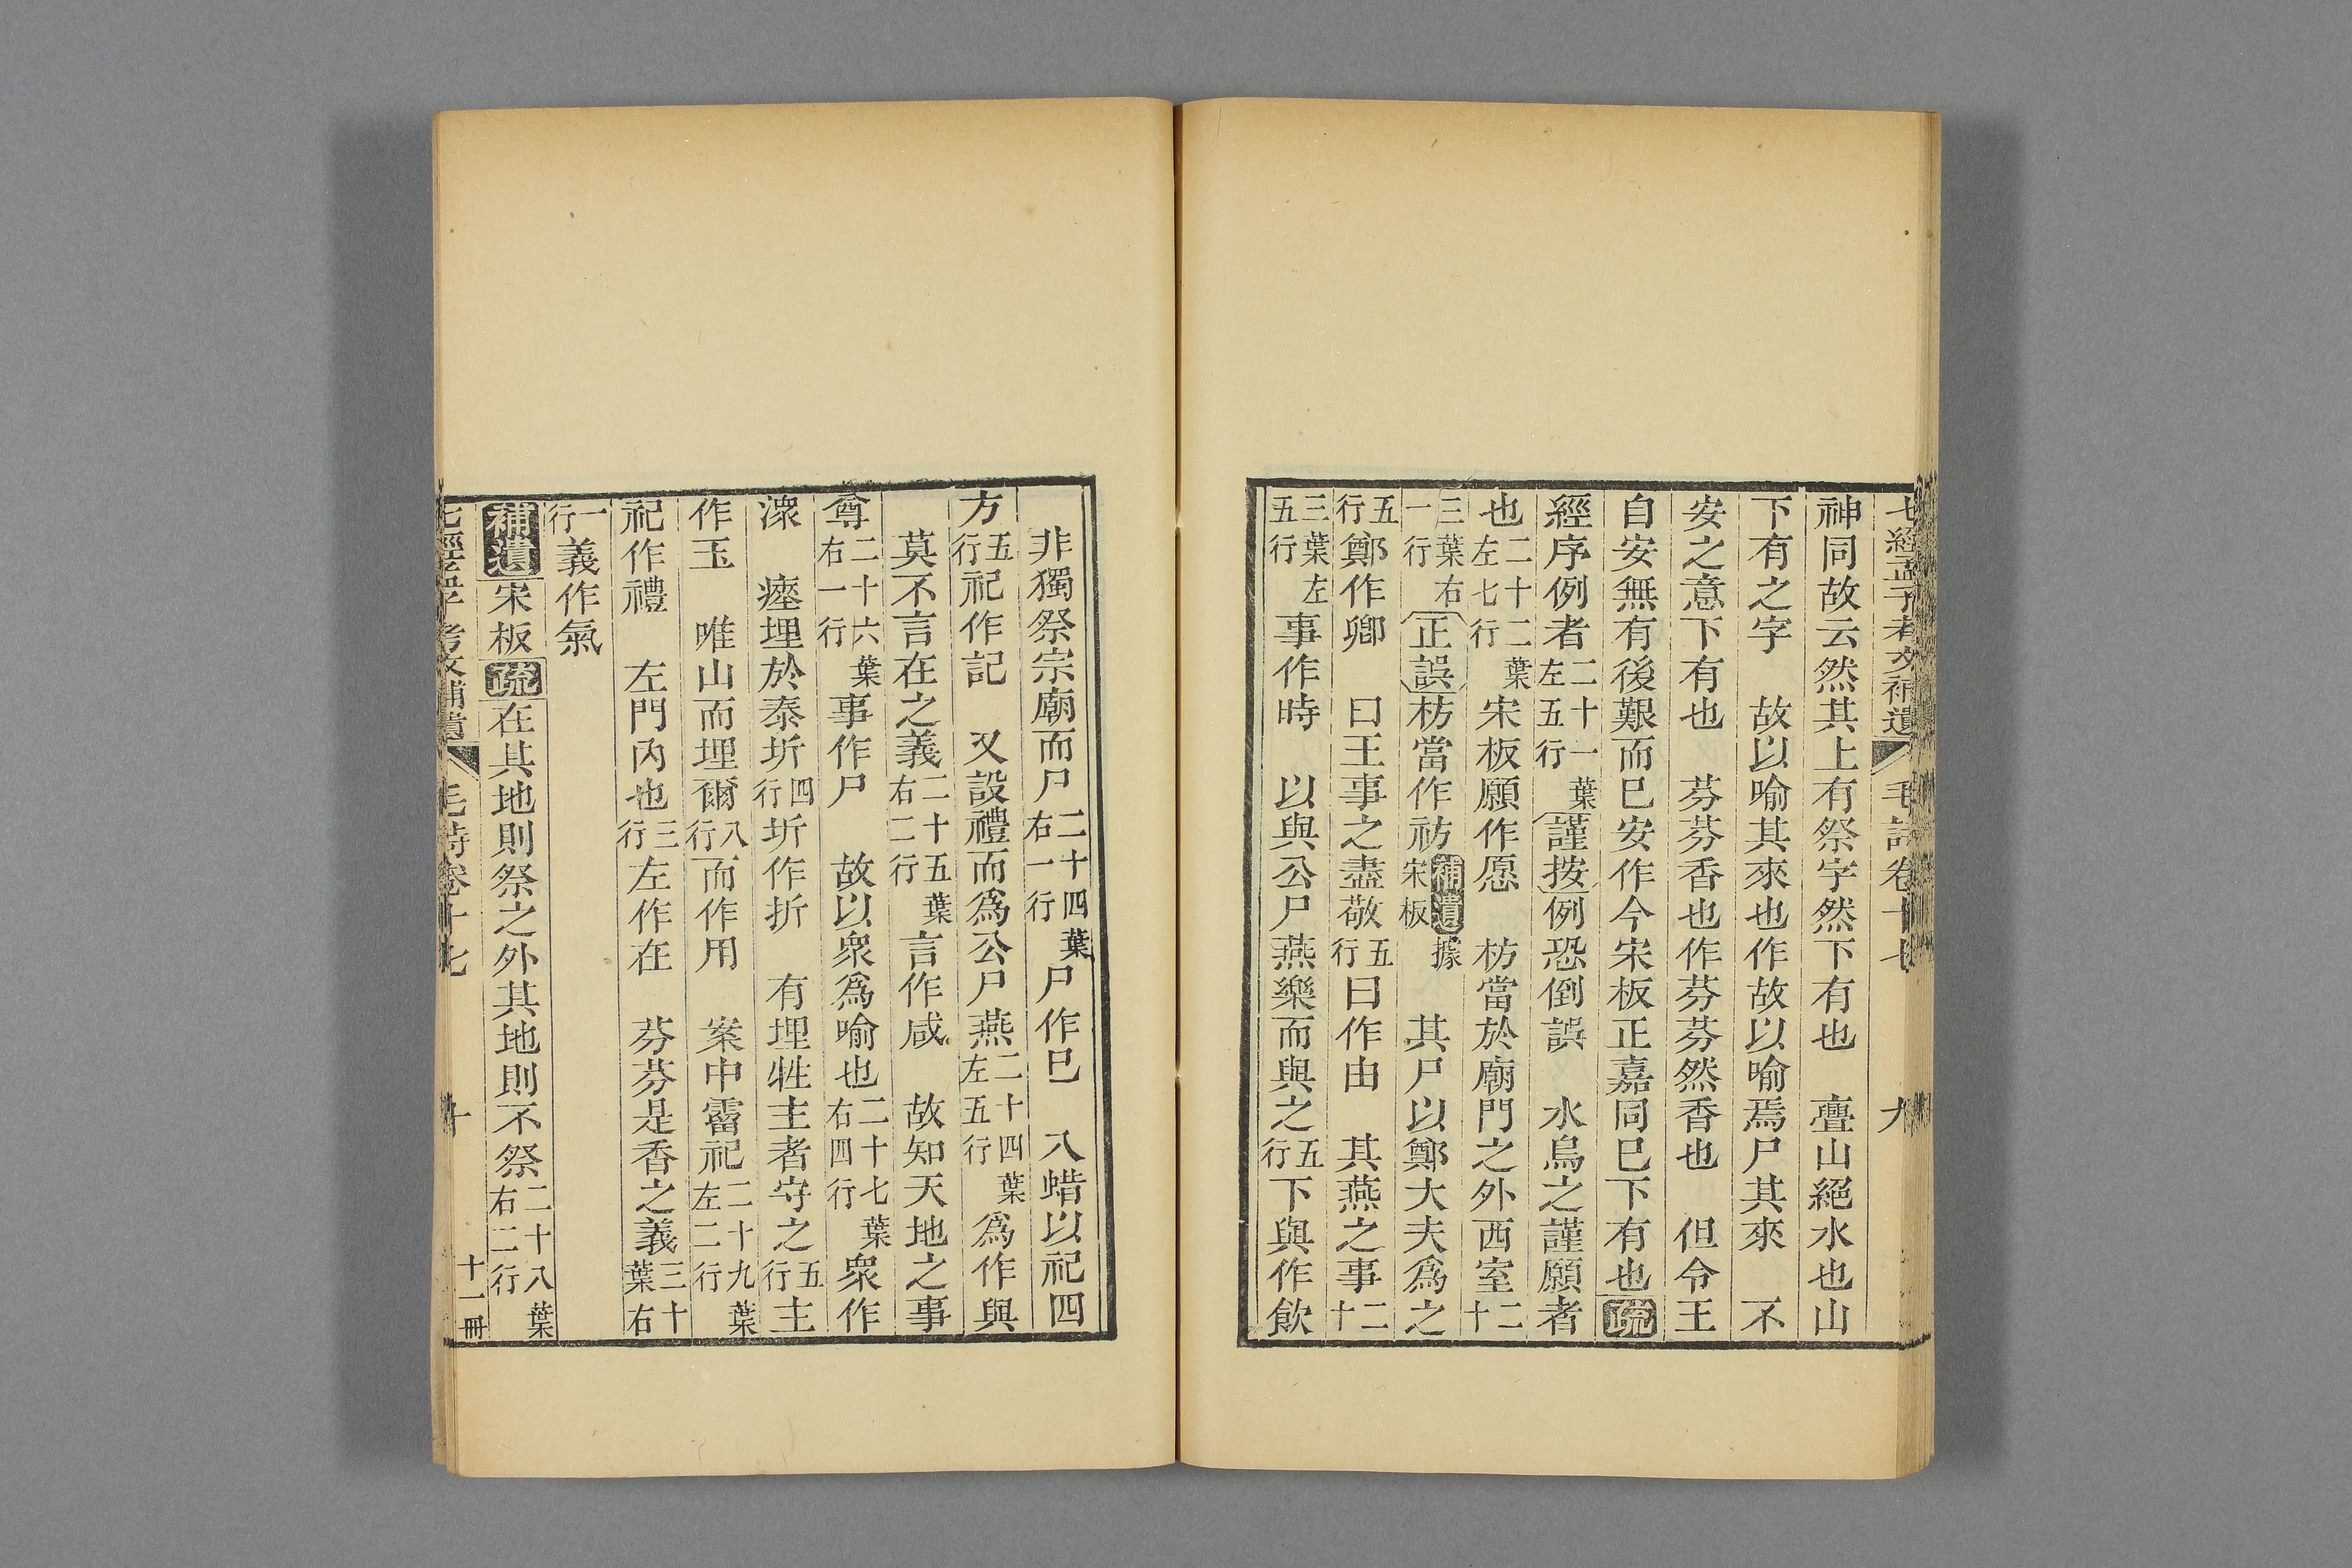 七經孟子考文補遺 毛詩卷十七 九
神同故云然其上有祭字然下有也 亹山絕水也山
下有之字 故以喻其來也作故以喻焉尸其來 不
安之意下有也 芬芬香也作芬芬然香也 但令王
自安無有後艱而巳安作今宋板正嘉同巳下有也疏
經序例者二十一葉左五行謹按例恐倒誤 水鳥之謹願者
也二十二葉左七行宋板願作愿 枋當於廟門之外西室二十
三葉右一行正誤枋當作祊補遺據宋板 其尸以鄭大夫爲之
五行鄭作卿 曰王事之盡敬五行曰作由 其燕之事二十
三葉左五行事作時 以與公尸燕樂而與之五行下與作飲
非獨祭宗廟而尸二十四葉右一行尸作巳 八蜡以祀四
方五行祀作記 又設禮而爲公尸燕二十四葉左五行爲作與
莫不言在之義二十五葉右二行言作咸 故知天地之事
尊二十六葉右一行事作尸 故以衆爲喻也二十七葉右四行衆作
潨 瘞埋於泰圻四行圻作折 有埋牲主者守之五行主
作玉 唯山而埋爾八行而作用 案中霤祀二十九葉左二行
祀作禮 左門內也三行左作在 芬芬是香之義三十葉右
一行義作氣
補遺宋板疏在其地則祭之外其地則不祭二十八葉右二行
七經孟子考文補遺 毛詩卷十七 十 十一冊